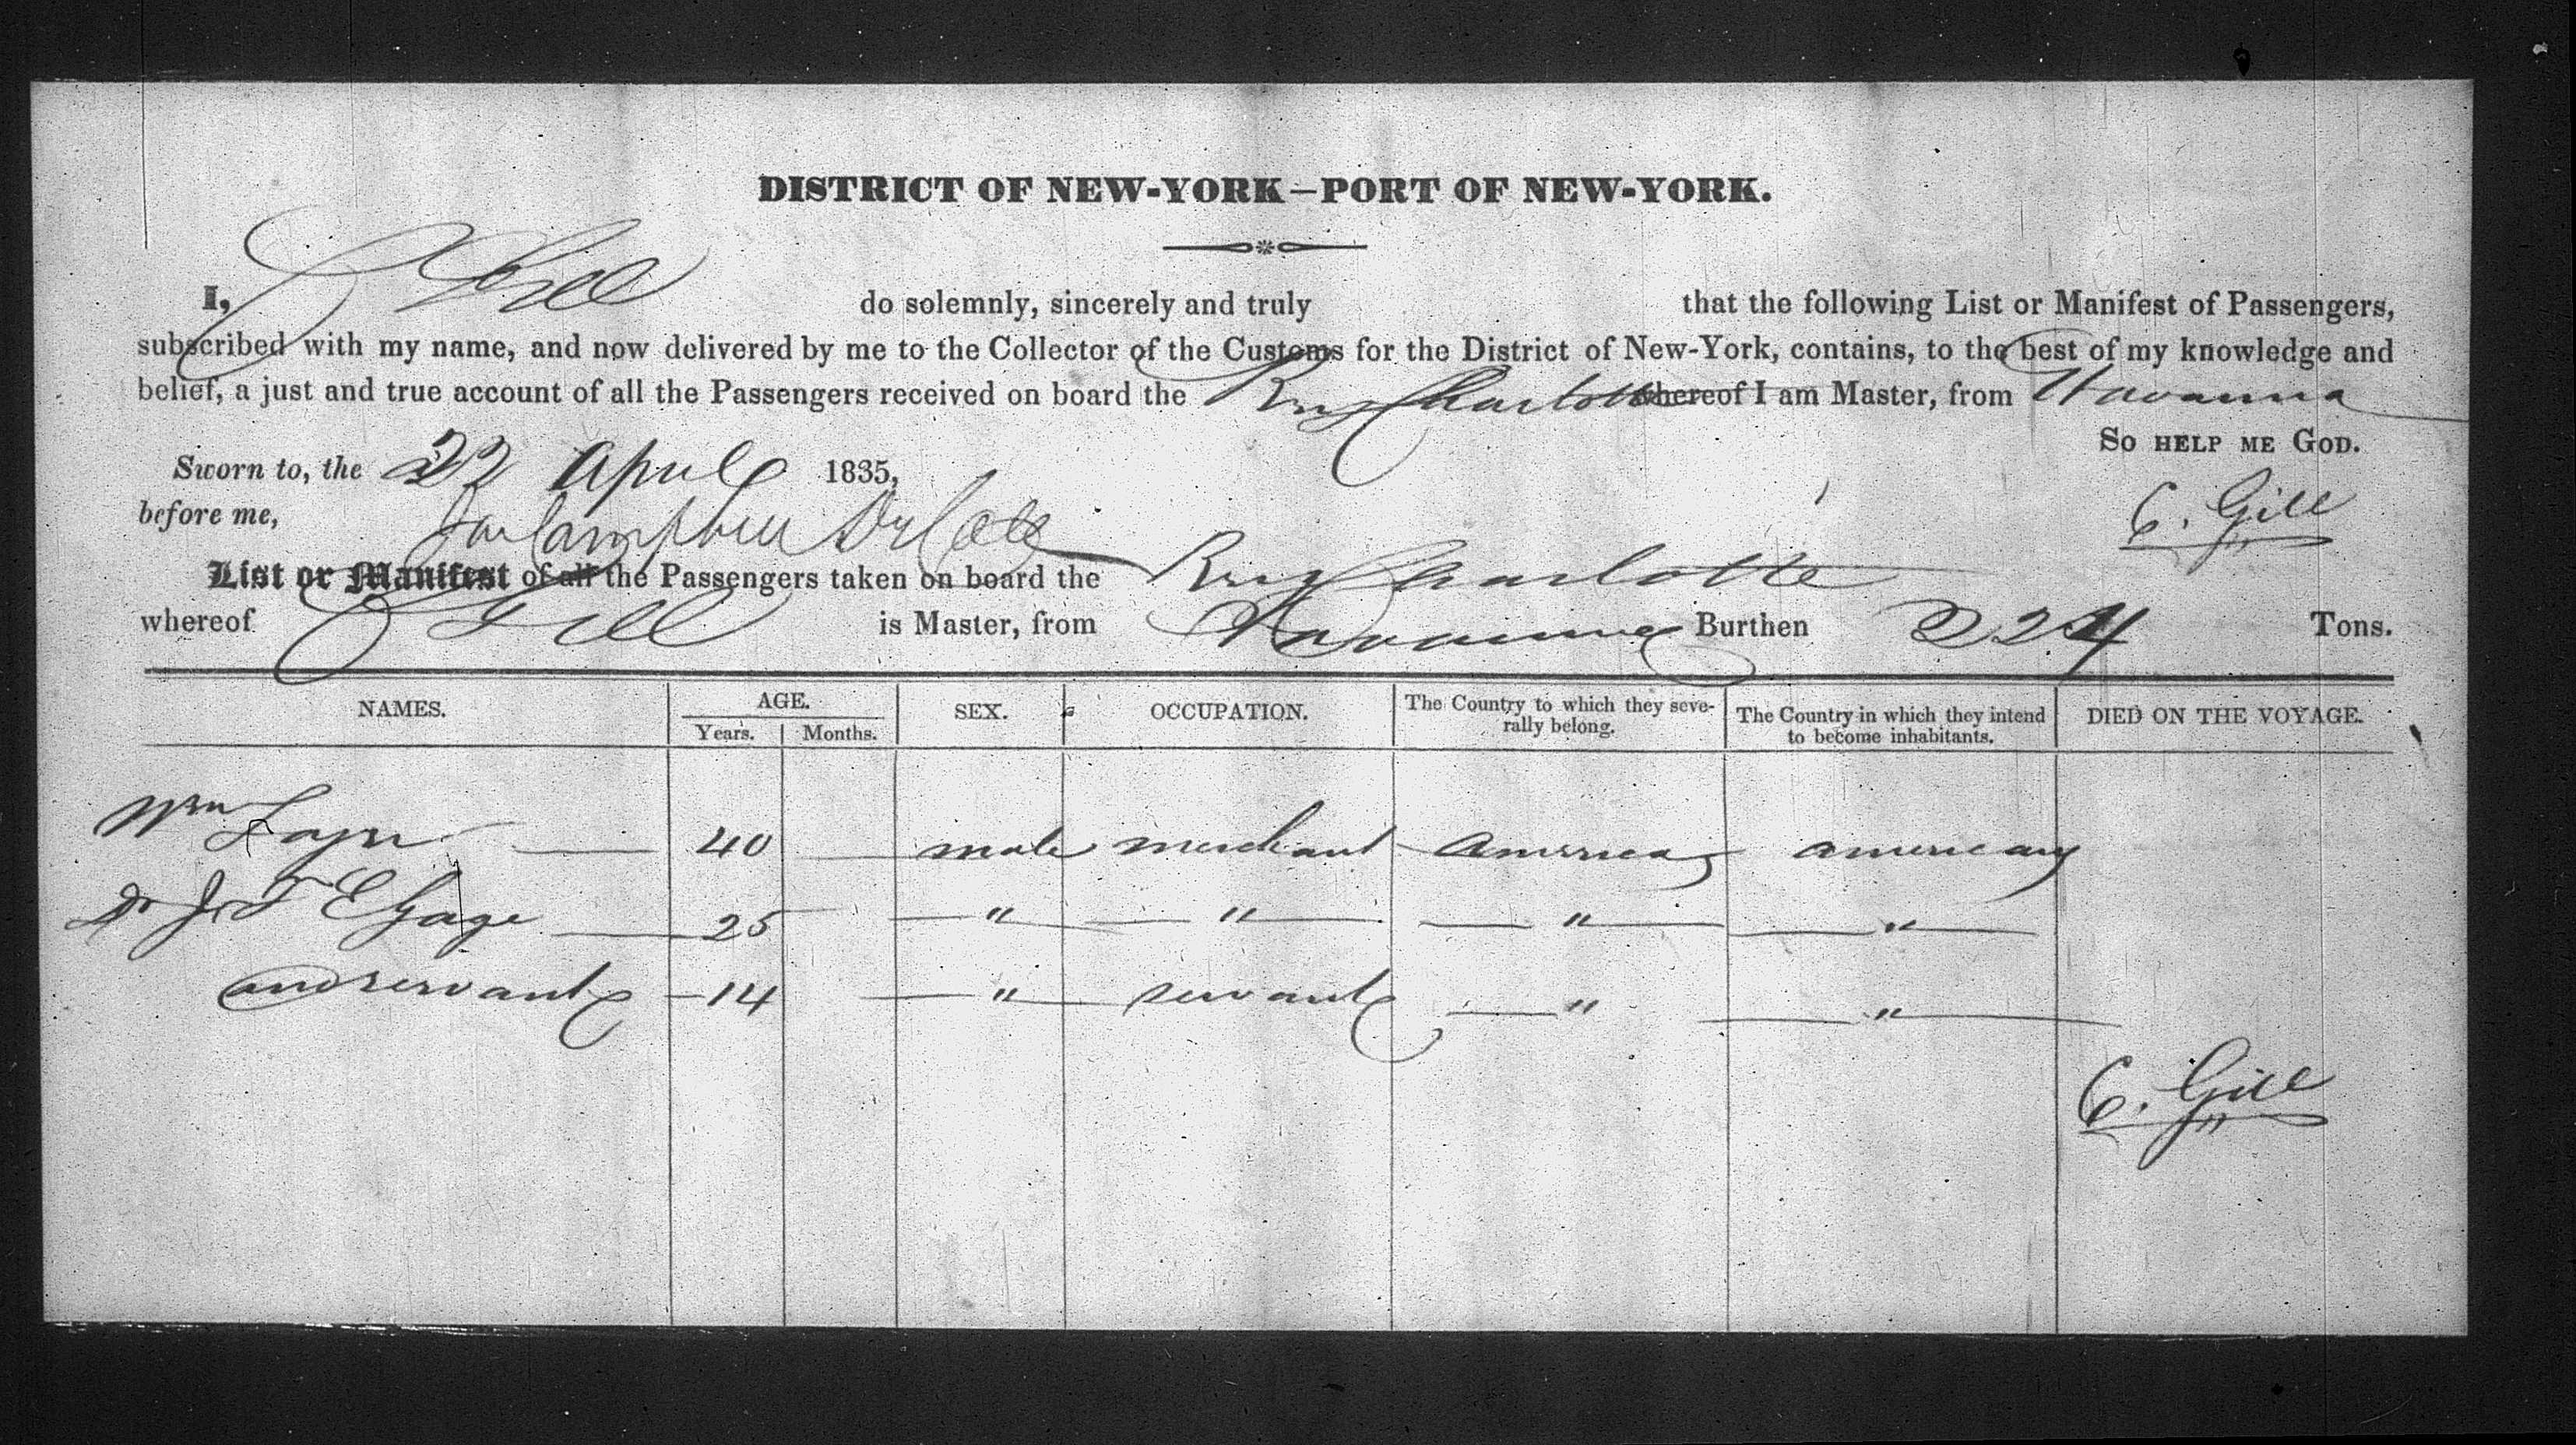 DISTRICT OF NEW-YORK—PORT OF NEW-YORK.
I, C Gill do solemnly, sincerely and truly that the following List or Manifest of Passengers,
subscribed with my name, and now delivered by me to the Collector of the Customs for the District of New-York, contains, to the best of my knowledge and
belief, a just and true account of all the Passengers received on board the Brig Charlotte whereof I am Master, from Havanna
So HELP ME GOD.
Sworn to, the 22 April 1835,
before me, Campbell C. Gill
List or Manifest of all the Passengers taken on board the Brig Charlotte
whereof C Gill is Master, from Havanna Burthen 224 Tons.
NAMES. AGE. SEX. OCCUPATION. The Country to which they seve-rally belong. The Country in which they intend to become inhabitants. DIED ON THE VOYAGE.
Years. Months.
Wm 40 male merchant America american
Dr J. T E Gage 25 " " " "
and servant 14 " servant " "
C. Gill